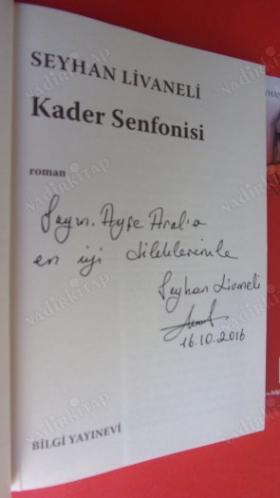 SEYHAN LİVANELİ
Kader Senfonisi
roman
Sayın. Ayşe Aral'a
en iyi dileklerimle
Seyhan Livaneli
16.10.2016
BİLGİ YAYINEVİ
NADİRKİTAP